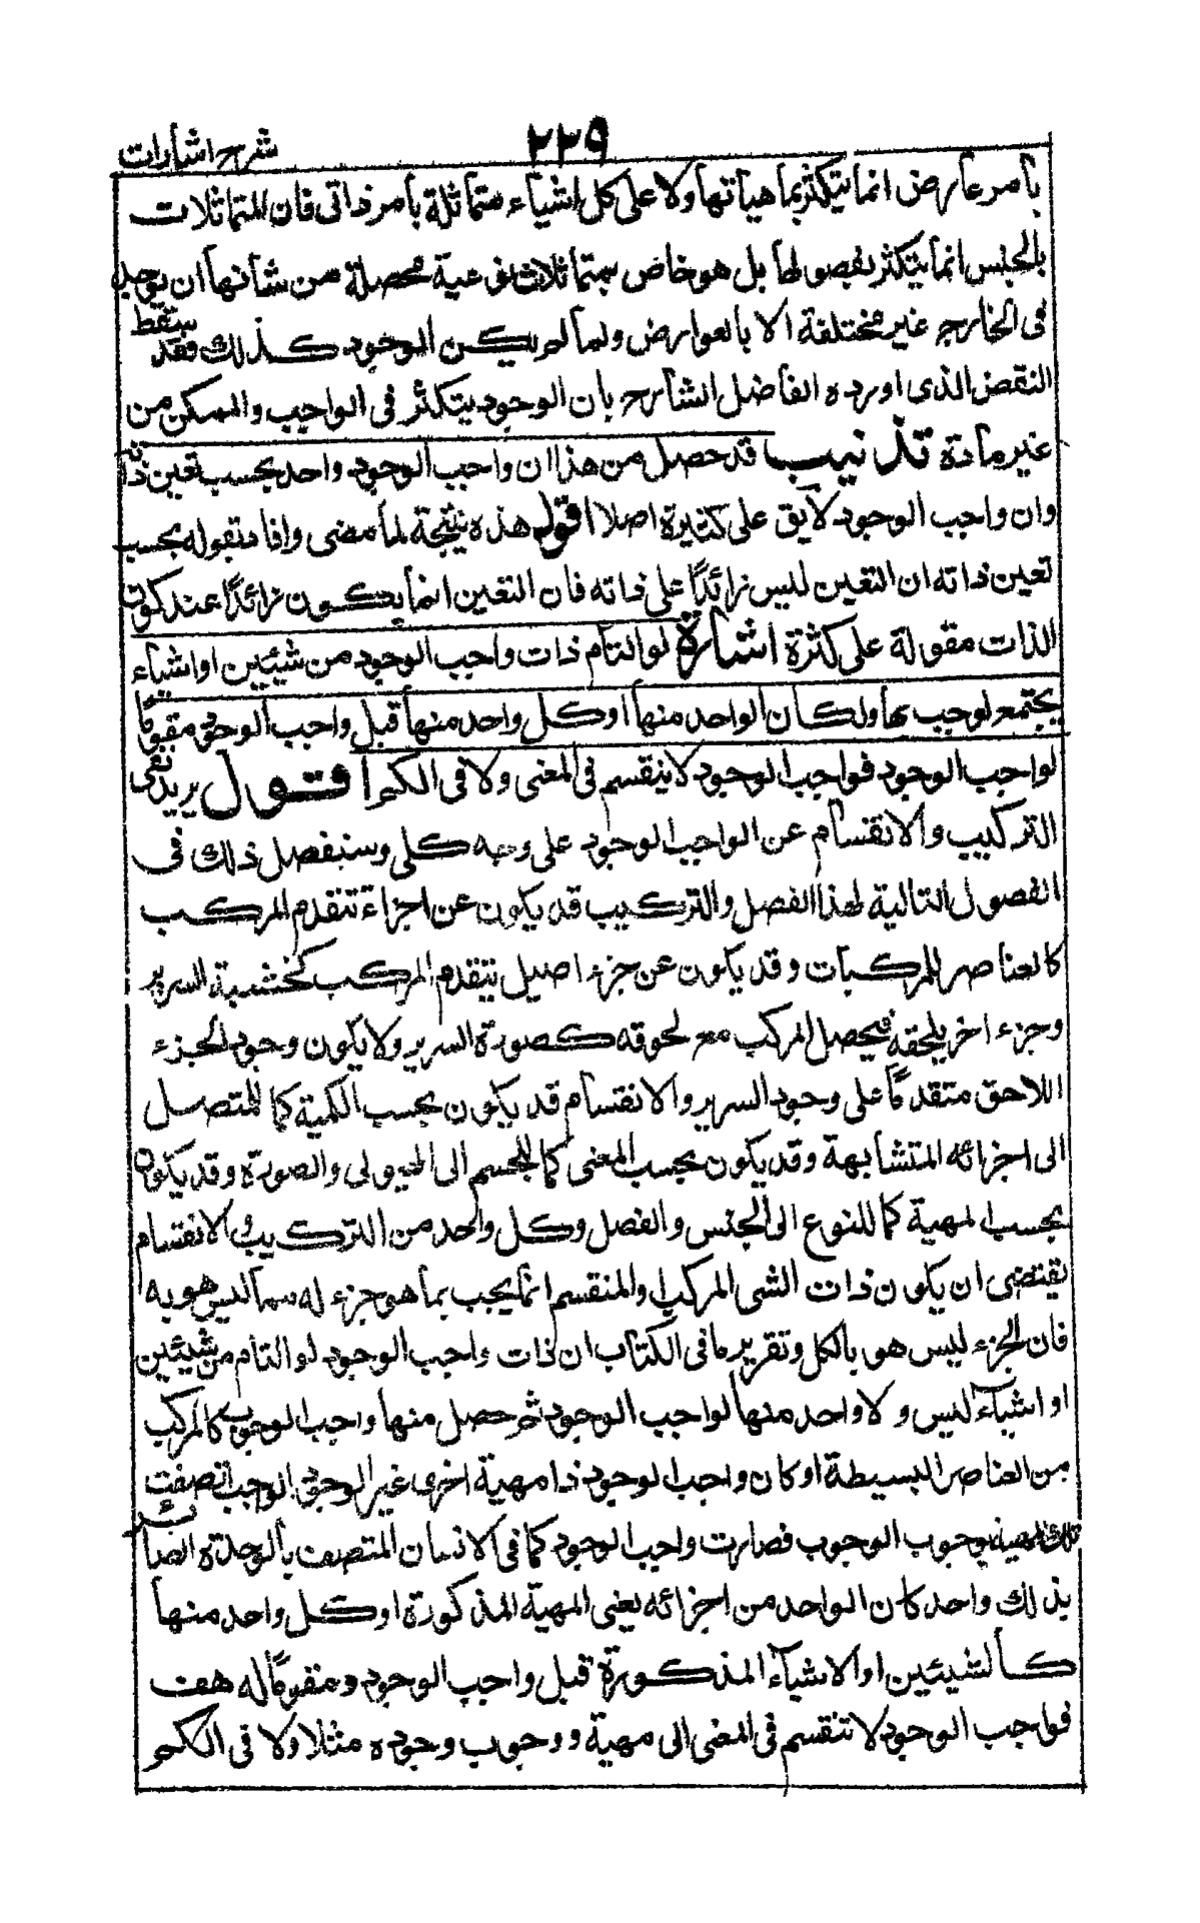 شرح اشارات
٢٢٩
بأمر عارض انما يتكثر بماهياتها ولا على كل اشياء متماثلة بأمر ذاتى فان المتماثلات
بالجنس انما يتكثر بفصولها بل هو خاص بمتماثلات نوعية محصلة من شأنها ان يوجد
فى الخارج غير مختلفة الا بالعوارض ولما لم يكن الوجود كذلك فقد سقط
النقض الذى اورده الفاضل الشارح بان الوجود يتكثر فى الواجب والممكن من
غير مادة تذنيب قد حصل من هذا ان واجب الوجود واحد بحسب تعين ذاته
وان واجب الوجود لايق على كثيرة اصلا اقول هذه نتيجة لما مضى وافاد بقوله بحسب
تعين ذاته ان التعين ليس زائدًا على ذاته فان التعين انما يكون زائدًا عند كون
الذات مقولة على كثرة اشارة لو التأم ذات واجب الوجود من شيئين او اشياء
يجتمع لوجب بها ولكان الواحد منها او كل واحد منها قبل واجب الوجود مقومًا
لواجب الوجود فواجب الوجود لا ينقسم فى المعنى ولا فى الكم اقول يريد نفى
التركيب والانقسام عن الواجب الوجود على وجه كلى وسنفصل ذلك فى
الفصول التالية لهذا الفصل والتركيب قد يكون عن اجزاء تتقدم المركب
كالعناصر للمركبات وقد يكون عن جزء اصيل يتقدم المركب كخشبة السرير
وجزء اخر يلحقه فيحصل المركب مع لحوقه كصورة السرير ولا يكون وجود الجزء
اللاحق متقدمًا على وجود السرير والانقسام قد يكون بحسب الكمية كما للمتصل
الى اجزائه المتشابهة وقد يكون بحسب المعنى كما للجسم الى الهيولى والصورة وقد يكون
بحسب المهية كما للنوع الى الجنس والفصل وكل واحد من التركيب والانقسام
يقتضى ان يكون ذات الشى المركب والمنقسم انما يجب بما هو جزء له مما ليس هو به
فان الجزء ليس هو بالكل وتقرير ما فى الكتاب ان ذات واجب الوجود لو التأم من شيئين
او اشياء ليس ولا واحد منها لواجب الوجود ثم حصل منها واجب الوجود كالمركب
من العناصر البسيطة او كان واجب الوجود ذا مهية اخرى غير الوجود الواجب اتصفت
تلك المهية بوجوب الوجوب فصارت واجب الوجود كما فى الانسان المتصف بالوحدة الصائر
بذلك واحد كان الواحد من اجزائه يعنى المهية المذكورة او كل واحد منها
كالشيئين او الاشياء المذكورة قبل واجب الوجود ومقومًا له هف
فواجب الوجود لا تنقسم فى المعنى الى مهية ووجوب وجوده مثلا ولا فى الكم